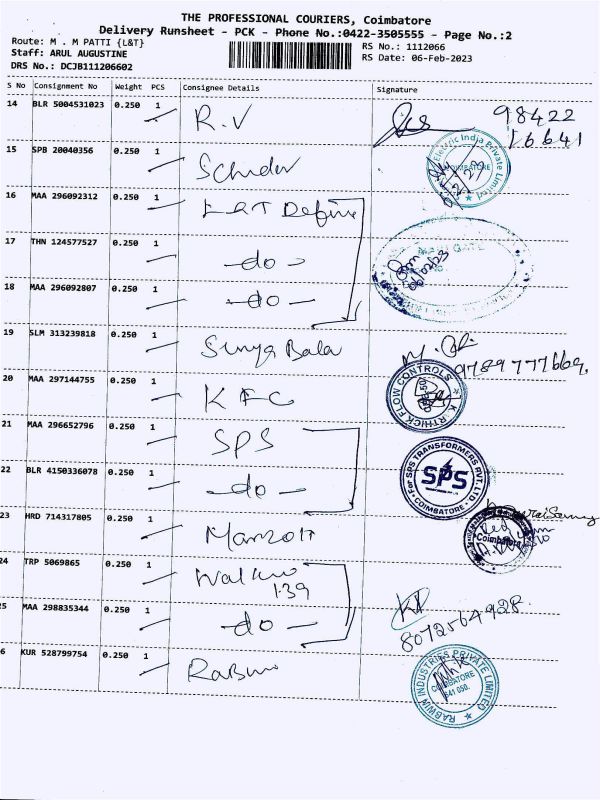 THE PROFESSIONAL COURIERS, Coimbatore
Delivery Runsheet - PCK - Phone No.:0422-3505555 - Page No.:2
Route: M . M PATTI {L&T}
RS No.: 1112066
Staff: ARUL AUGUSTINE
RS Date: 06-Feb-2023
DRS No.: DCJB111206602
S No Consignment No Weight PCS Consignee Details Signature
14 BLR 5004531023 0.250 1 R.V 98422
16641
15 SPB 20040356 0.250 1 Electric India Private Limited
COIMBATORE
16 MAA 296092312 0.250 1 L&T Defence
17 THN 124577527 0.250 1 -do- MAIN GATE
06/02/23
18 MAA 296092807 0.250 1 -do-
19 SLM 313239818 0.250 1 Surya Bala
9789777669
20 MAA 297144755 0.250 1 KFC KARTHICK FLOW CONTROLS
21 MAA 296652796 0.250 1 SPS For SPS TRANSFORMERS PVT. LTD.
SPS
COIMBATORE
22 BLR 4150336078 0.250 1 -do-
23 HRD 714317805 0.250 1 Coimbatore
24 TRP 5069865 0.250 1
139
25 MAA 298835344 0.250 1 -do- 8072564928
6 KUR 528799754 0.250 1 Rabwin RABWIN INDUSTRIES PRIVATE LIMITED
COIMBATORE
641 050.